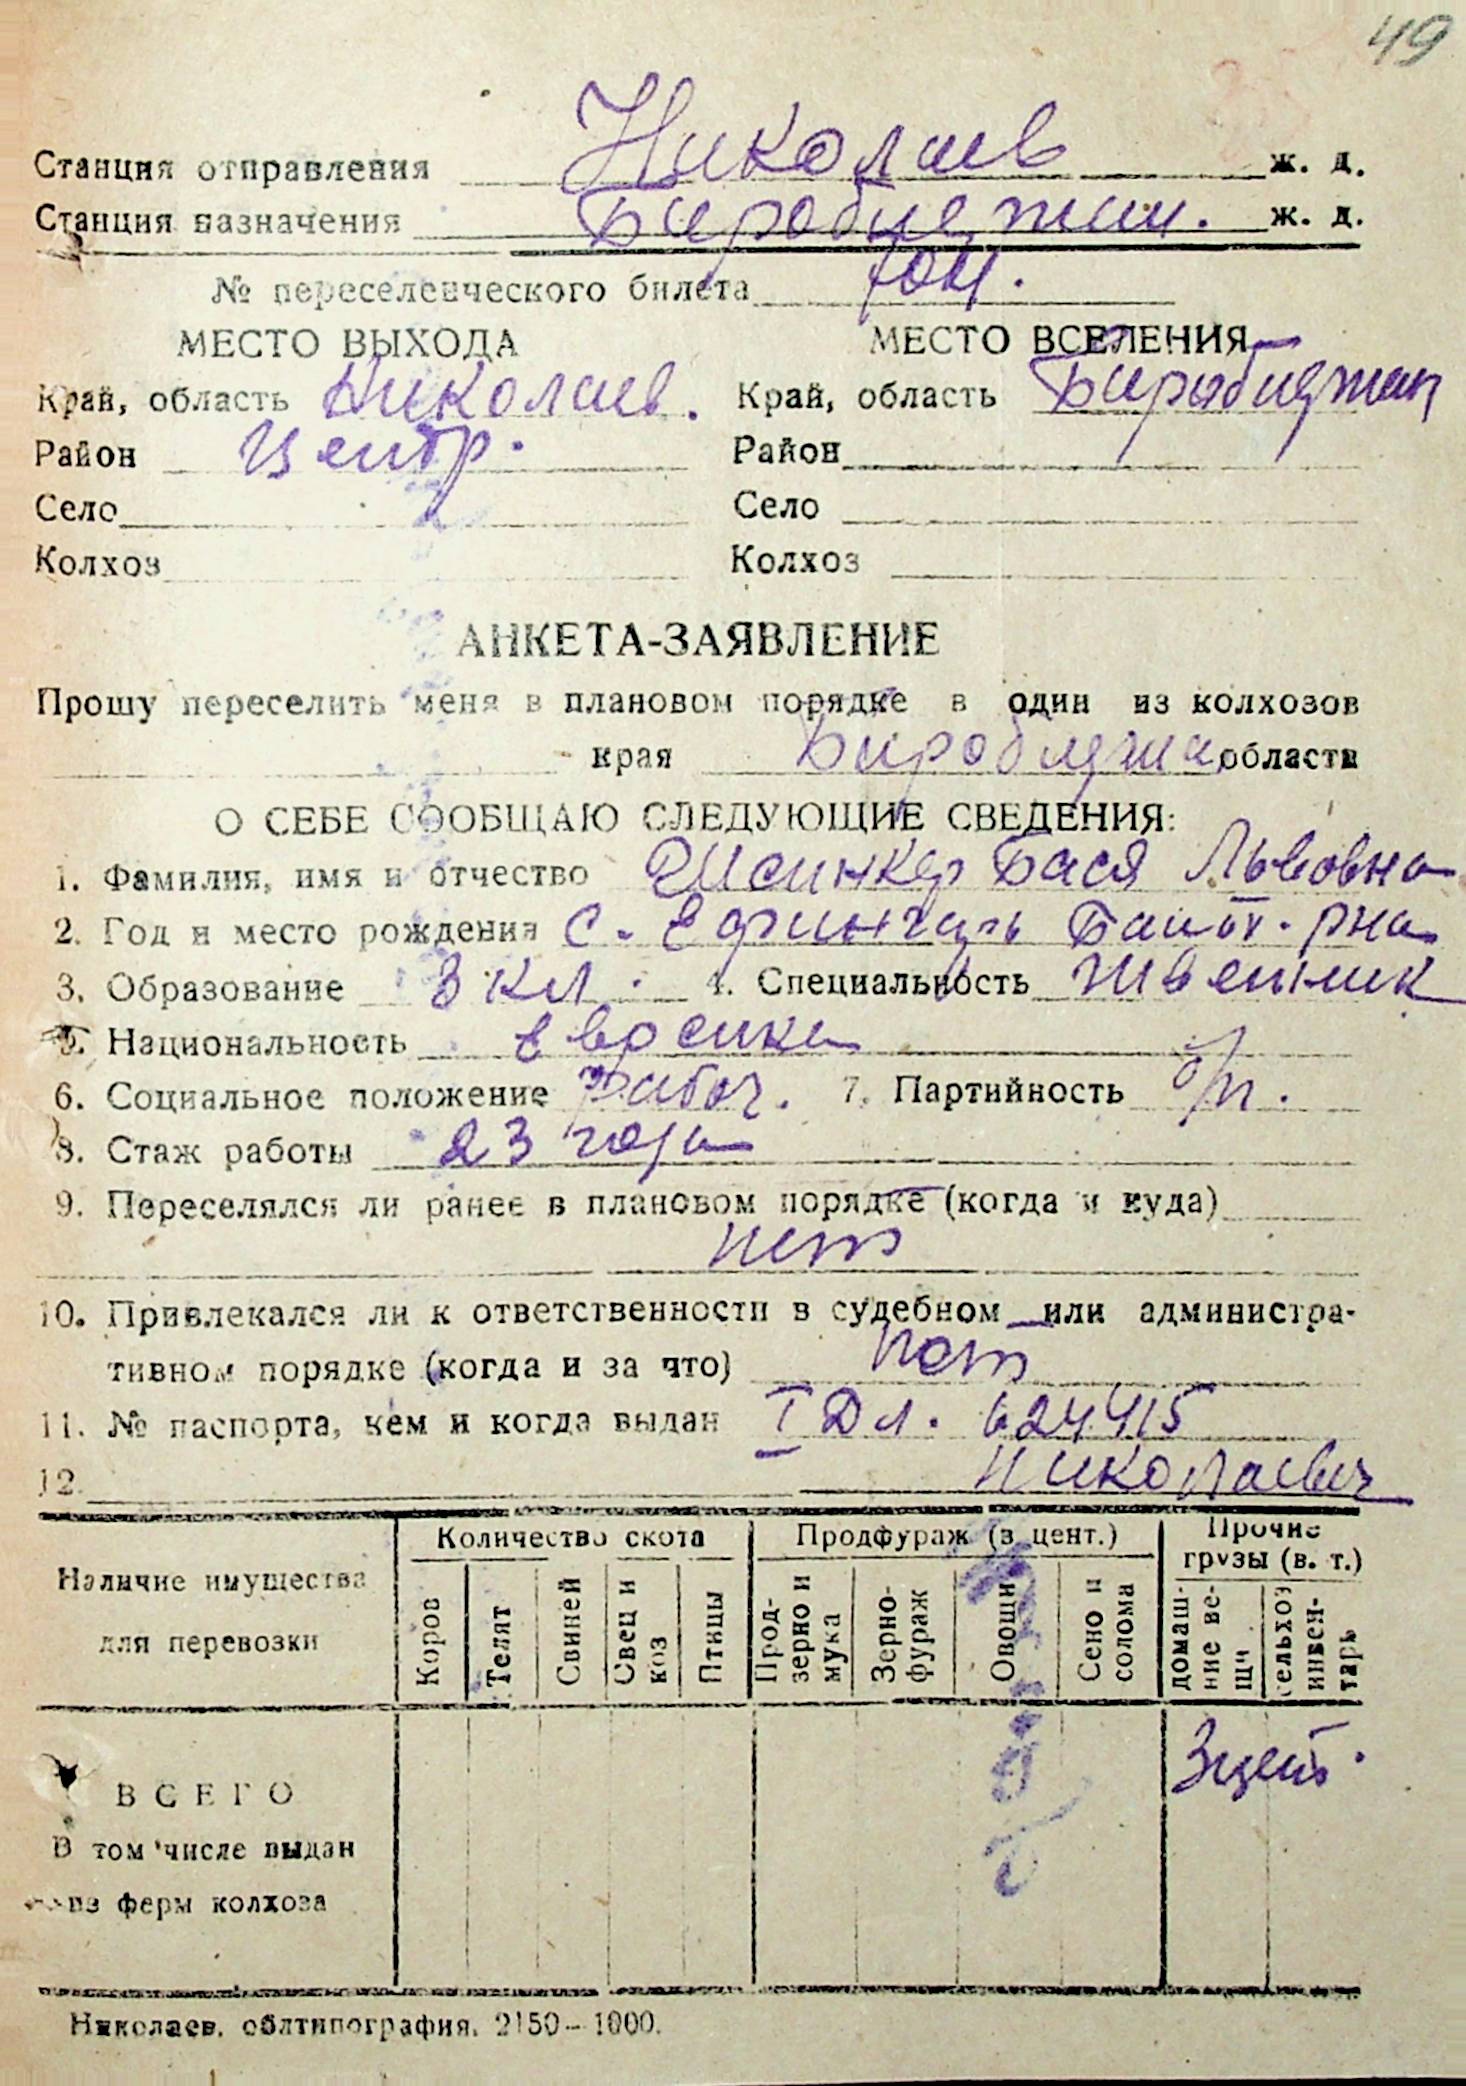 49
Станция отправления Николаев ж. д.
Станция назначения Биробиджан. ж. д.
№ переселенческого билета
МЕСТО ВЫХОДА МЕСТО ВСЕЛЕНИЯ
Край, область Николаев. Край, область Биробиджан
Район Центр. Район
Село Село
Колхоз Колхоз
АНКЕТА-ЗАЯВЛЕНИЕ
Прошу переселить меня в плановом порядке в один из колхозов
края Биробиджан области
О СЕБЕ СООБЩАЮ СЛЕДУЮЩИЕ СВЕДЕНИЯ:
1. Фамилия, имя и отчество Бася Львовна
2. Год и место рождения с. Ефингарь Башт. р-на
3. Образование 3 кл. 4. Специальность Швейник
5. Национальность еврейка
6. Социальное положение Рабоч. 7. Партийность б/п.
8. Стаж работы 23 года
9. Переселялся ли ранее в плановом порядке (когда и куда)
нет
10. Привлекался ли к ответственности в судебном или администра-
тивном порядке (когда и за что) нет
11. № паспорта, кем и когда выдан I ДЛ. 624415
12.
Наличие имущества для перевозки
Количество скота
Продфураж (в цент.)
Прочие грузы (в. т.)
Коров
Телят
Свиней
Овец и коз
Птицы
Прод-зерно и мука
Зерно-фураж
Овощи
Сено и солома
домаш-ние ве-щи
сельхоз инвен-тарь
ВСЕГО 3 цент.
В том числе выдан
из ферм колхоза
Николаев. облтипография. 2150—1000.